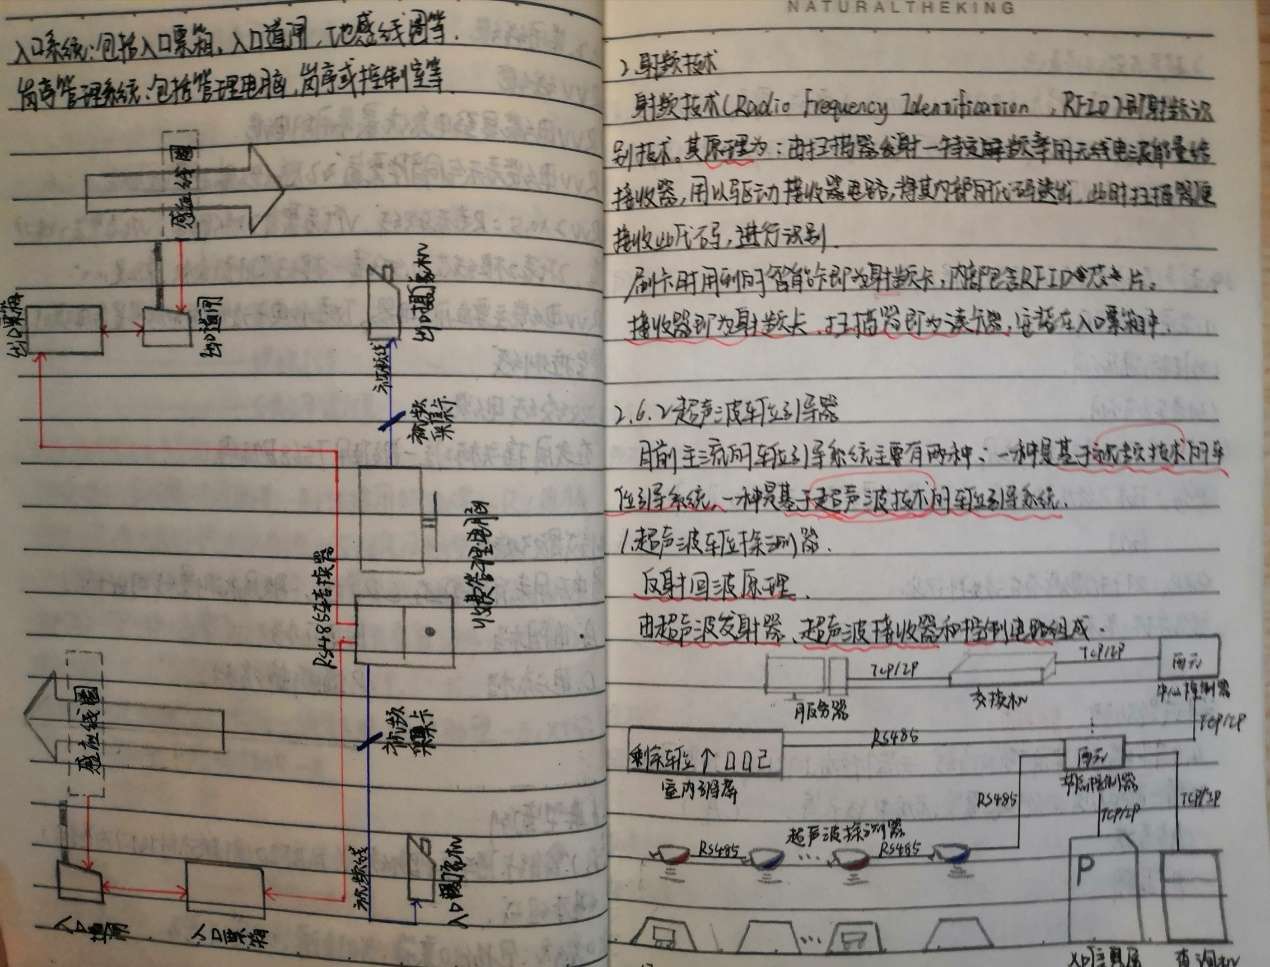 入口系统：包括入口票箱，入口道闸，地感线圈等．
岗亭管理系统：包括管理电脑，岗亭或控制室等
感应线圈
出口票箱
出口道闸
出口摄像机
视频线
视频采集卡
收费管理电脑
RS485转换器
感应线圈
视频采集卡
视频线
入口摄像机
入口道闸
入口票箱
NATURALTHEKING
2.射频技术
射频技术(Radio Frequency Identification，RFID)即射频识
别技术。其原理为：由扫描器发射一特定频率的无线电波能量给
接收器，用以驱动接收器电路，将其内部的代码送出，此时扫描器便
接收此代码，进行识别．
刷卡时用到的智能卡即为射频卡，内部包含RFID芯片。
接收器即为射频卡，扫描器即为读卡器，安装在入口票箱中．
2.6.2超声波车位引导器
目前主流的车位引导系统主要有两种：一种是基于视频技术的车
位引导系统，一种是基于超声波技术的车位引导系统．
1.超声波车位探测器．
反射回波原理．
由超声波发射器、超声波接收器和控制电路组成．
服务器
TCP/IP
交换机
TCP/IP
西元
中心控制器
TCP/IP
剩余车位↑
室内引导屏
RS485
西元
节点控制器
RS485
TCP/IP
TCP/IP
超声波探测器
RS485
...
RS485
P
...
入口信息屏
查询机